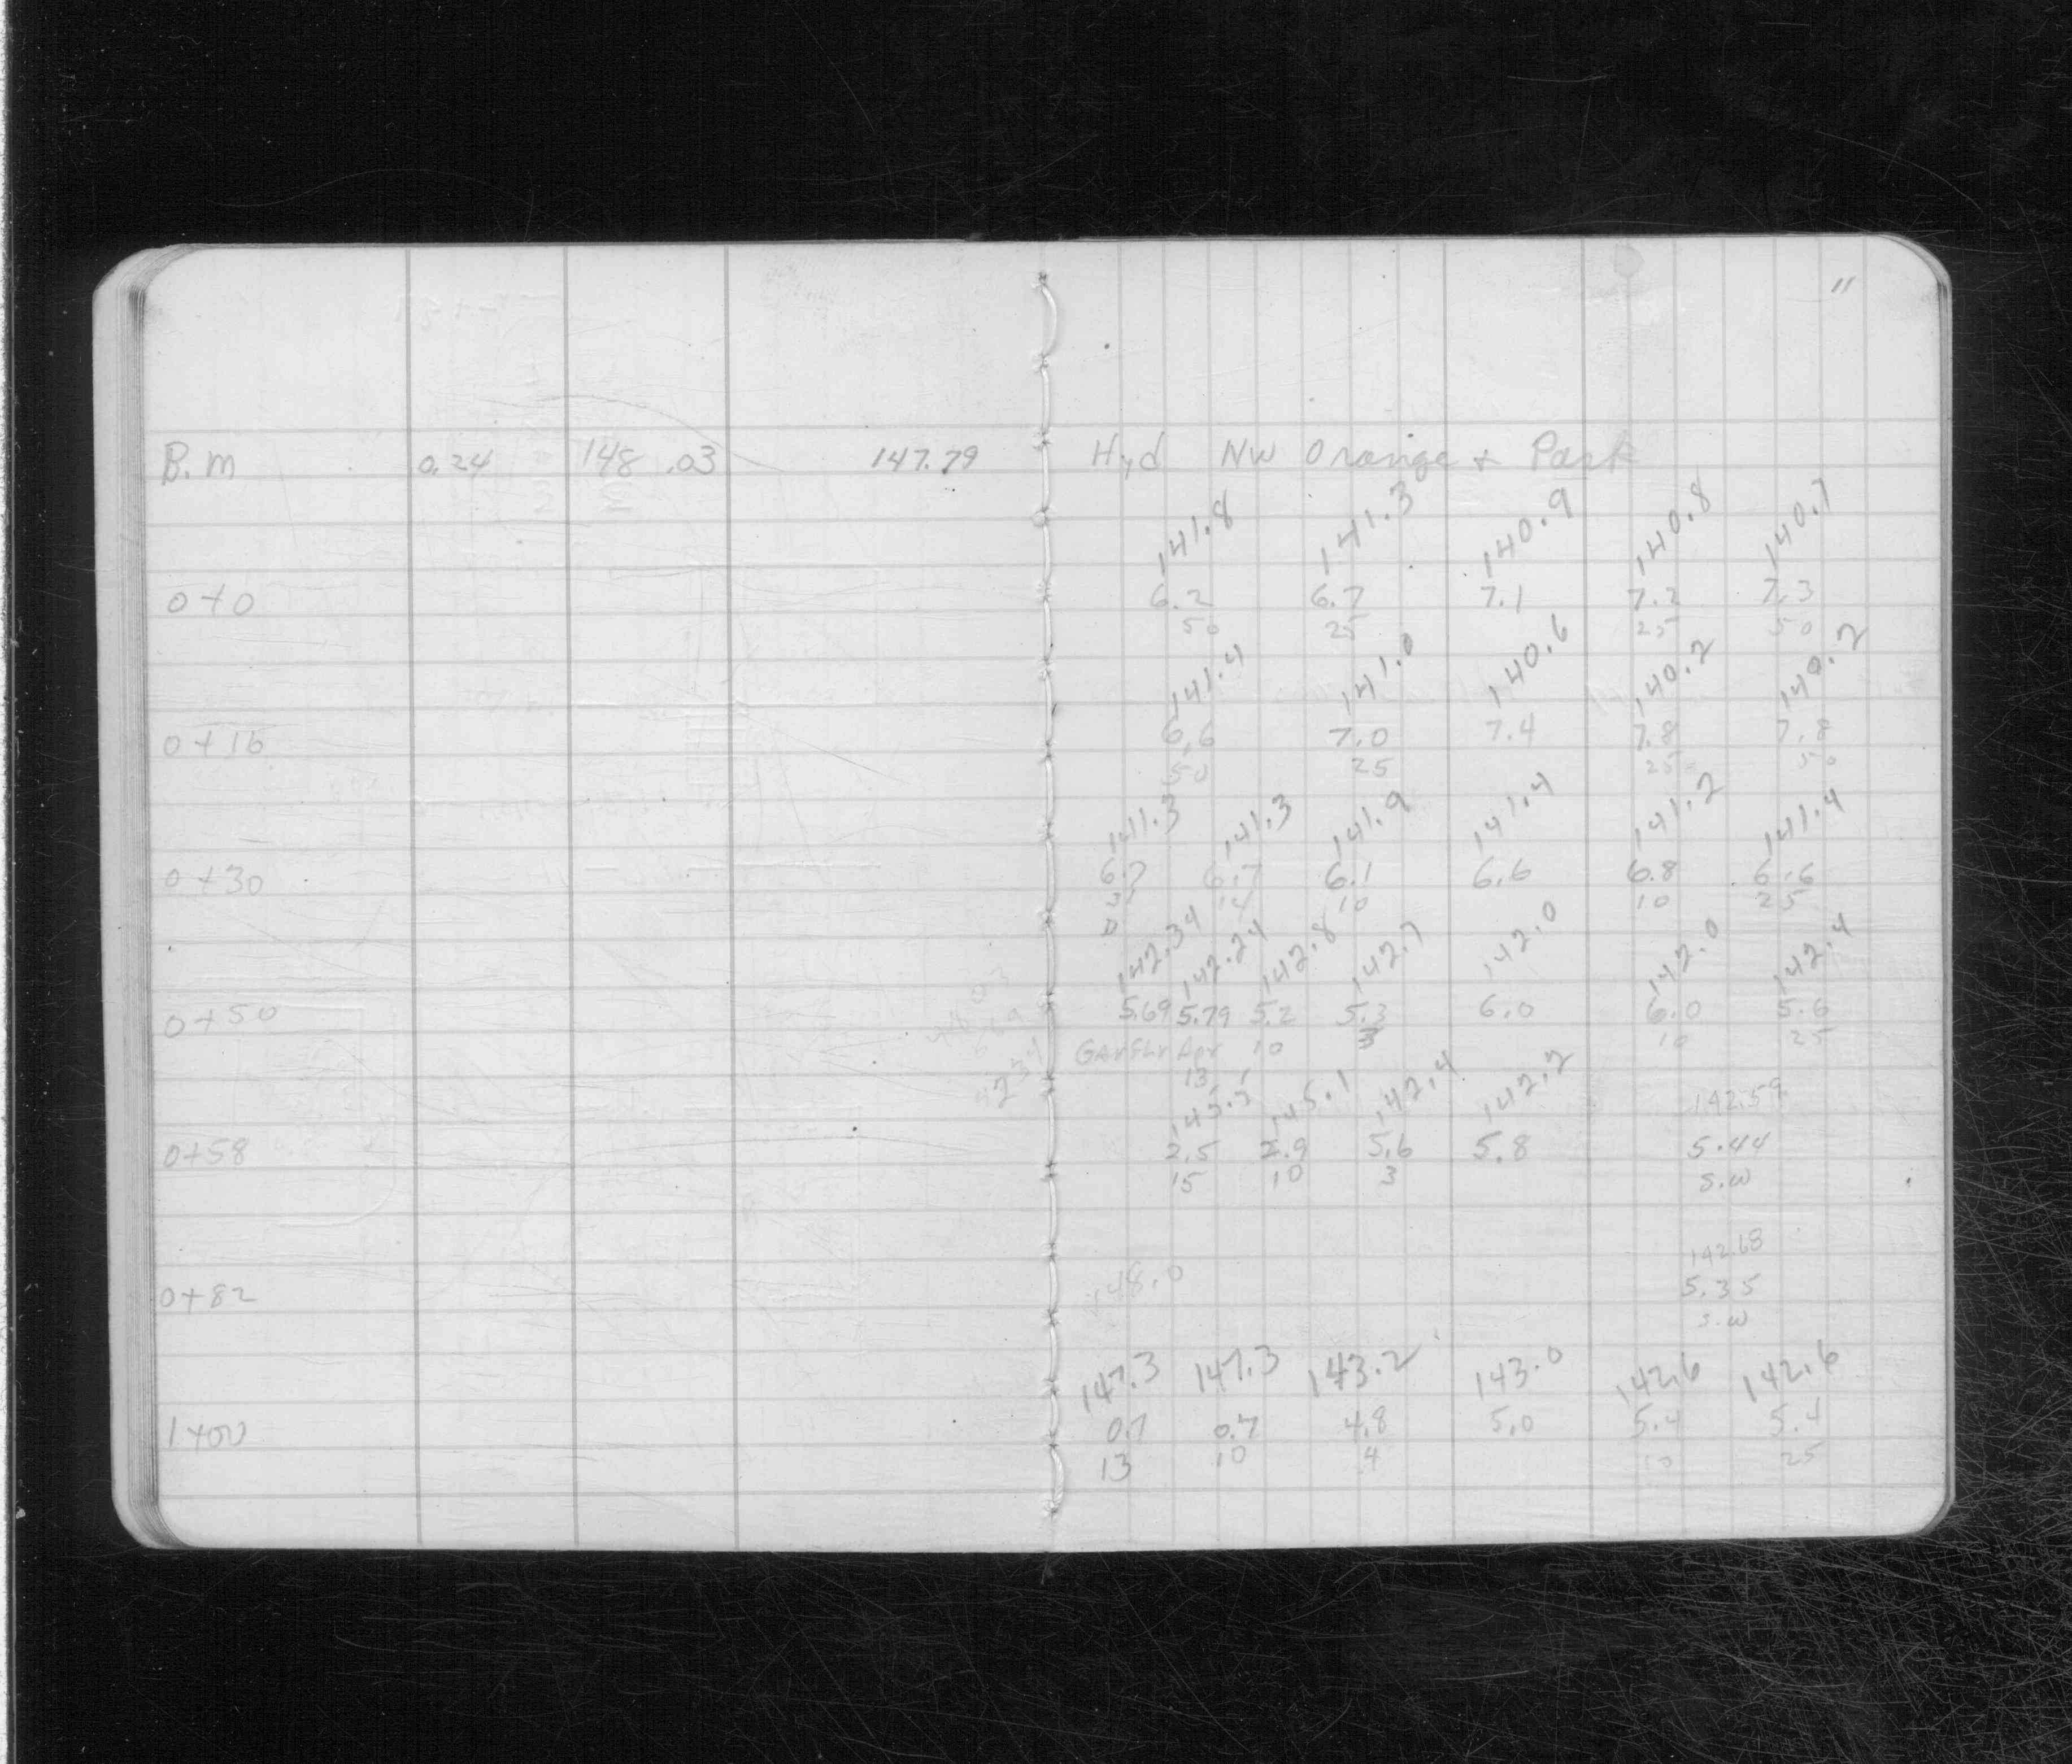 "
B.M 0.24 148.03 147.79 Hyd NW Orange & Park
141.8 141.3 140.9 140.8 140.7
0+0 6.2 6.7 7.1 7.2 7.3
50 25 25 50
141.4 141.0 140.6 140.2 140.2
0+16 6.6 7.0 7.4 7.8 7.8
50 25 25 50
141.3 141.3 141.9 141.4 141.2 141.4
0+30 6.7 6.7 6.1 6.6 6.8 6.6
14 10 10 25
142.34 142.24 142.8 142.7 142.0 142.0 142.4
0+50 5.69 5.79 5.2 5.3 6.0 6.0 5.6
Gar Flr Apr 10 3 10 25
13
145.5 145.1 142.4 142.2 142.59
0+58 2.5 2.9 5.6 5.8 5.44
15 10 3 S.W
142.68
0+82 148.0 5.35
S.W
147.3 147.3 143.2 143.0 142.6 142.6
1+00 0.7 0.7 4.8 5.0 5.4 5.4
13 10 4 10 25